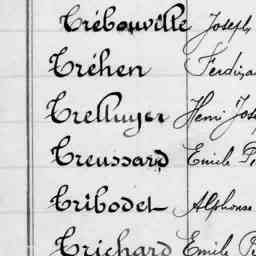 Trébouville Joseph
Tréhen Ferdina
Trelluyer Henri Jose
Treussard Emile P
Tribodet Alphonse
Trichard Emile Pi